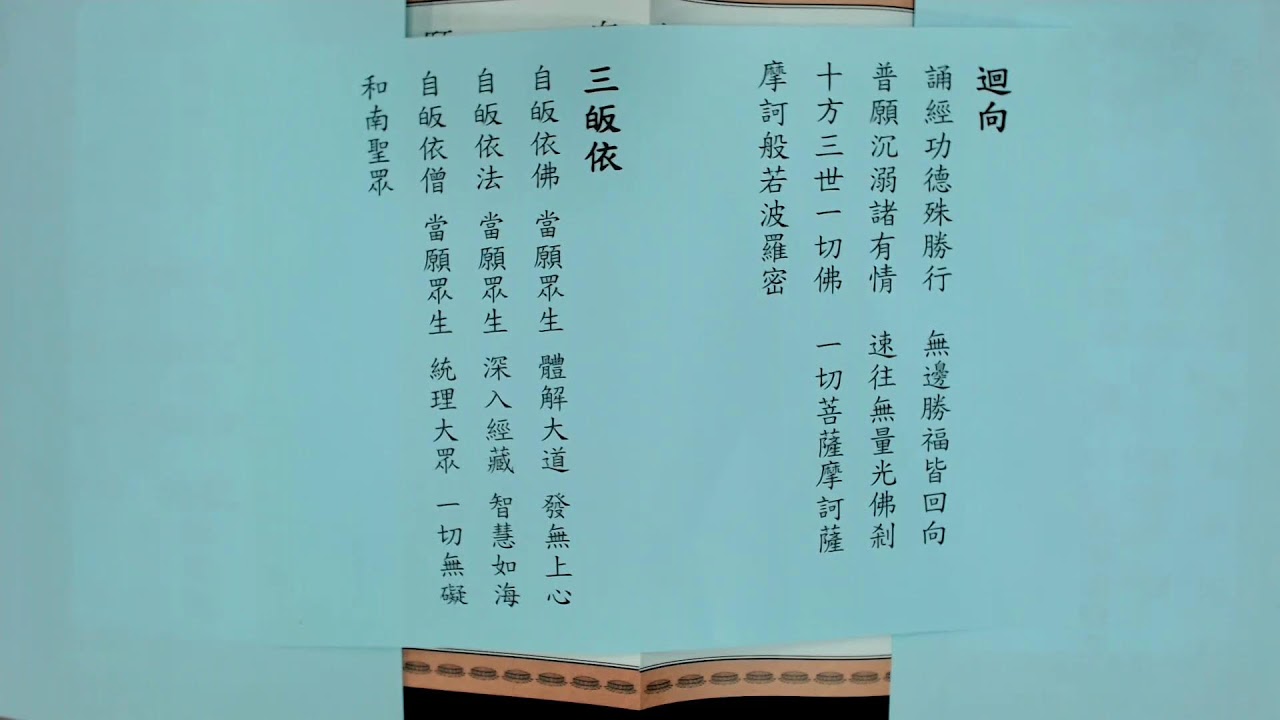 迴向
誦經功德殊勝行 無邊勝福皆回向
普願沉溺諸有情 速往無量光佛剎
十方三世一切佛 一切菩薩摩訶薩
摩訶般若波羅密
三皈依
自皈依佛 當願眾生 體解大道 發無上心
自皈依法 當願眾生 深入經藏 智慧如海
自皈依僧 當願眾生 統理大眾 一切無礙
和南聖眾